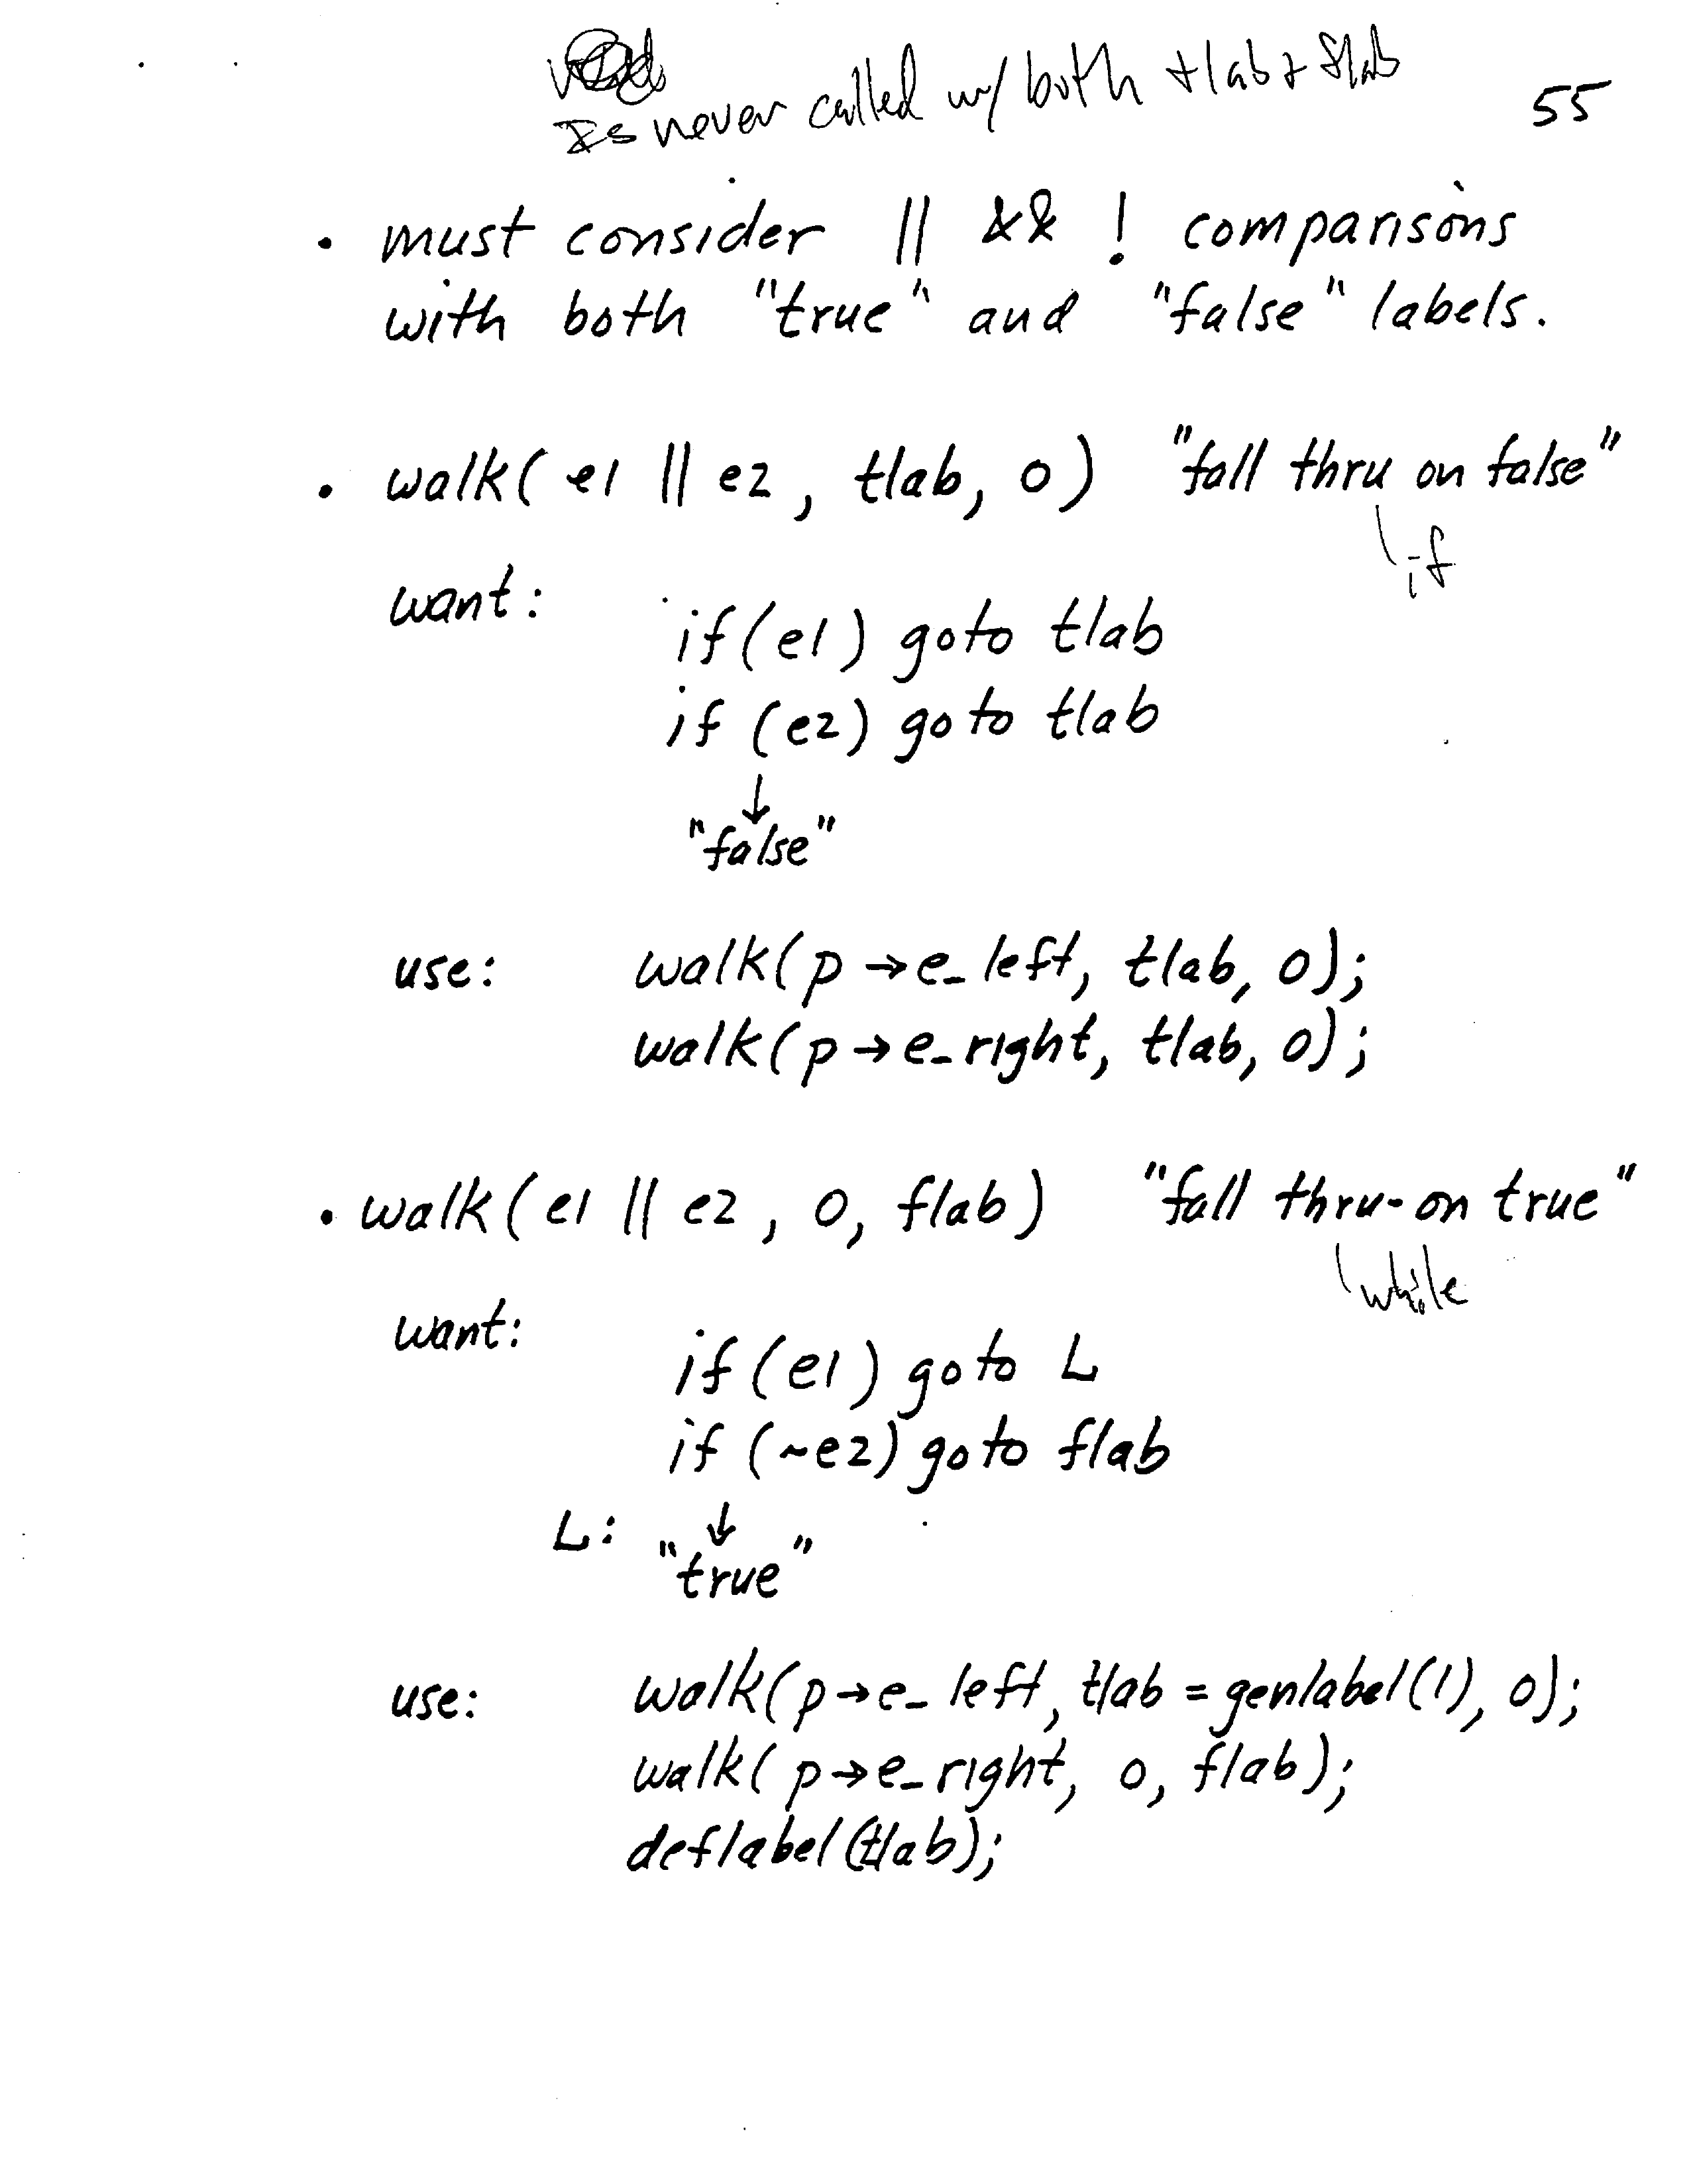 Is never called w/ both tlab & flab
55
• must consider || && ! comparisons
with both "true" and "false" labels.
• walk( e1 || e2, tlab, 0) "fall thru on false"
if
want:
if(e1) goto tlab
if (e2) goto tlab
↓
"false"
use: walk(p→e_left, tlab, 0);
walk(p→e_right, tlab, 0);
• walk(e1 || e2, 0, flab) "fall thru-on true"
while
want:
if(e1) goto L
if (~e2) goto flab
L: ↓
"true"
use: walk(p→e_left, tlab = genlabel(1), 0);
walk(p→e_right, 0, flab);
deflabel(tlab);